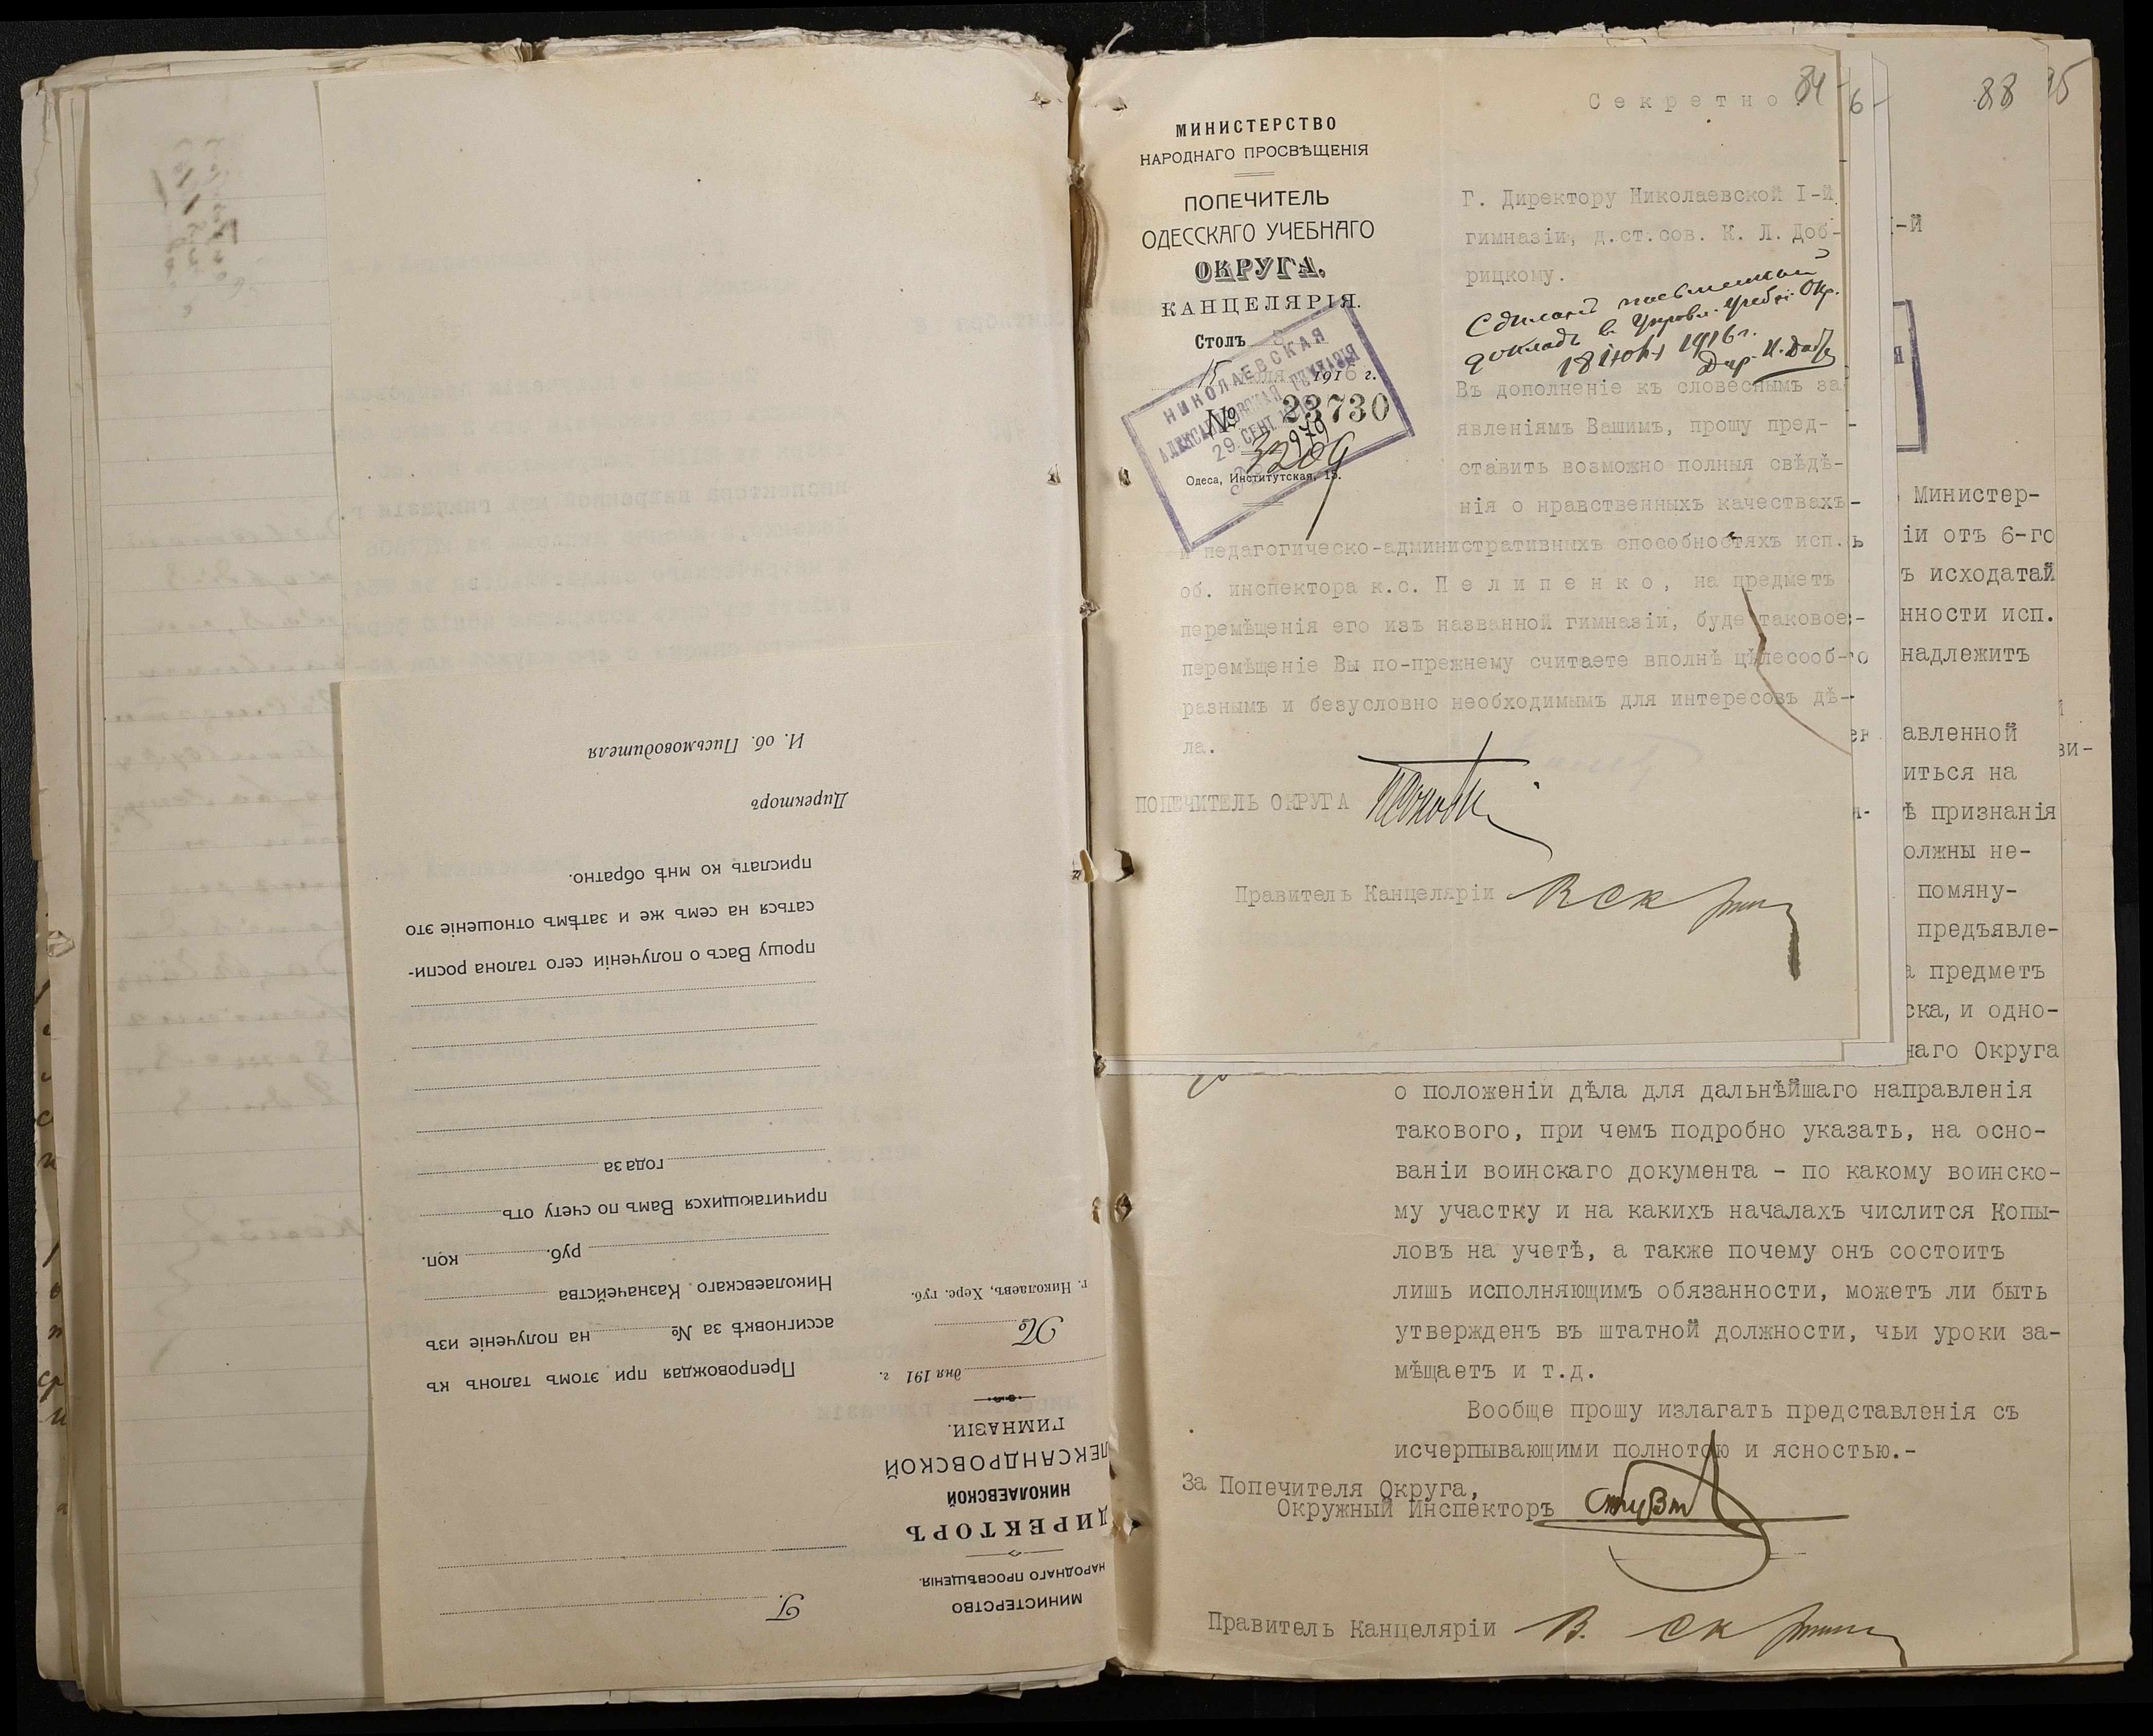 И. об. Письмоводителя
Директоръ
прислать ко мнѣ обратно.
саться на семъ же и затѣмъ отношеніе это
прошу Васъ о полученіи сего талона роспи-
года за
причитающихся Вамъ по счету отъ
руб. коп.
Николаевскаго Казначейства
ассигновкѣ за № на полученіе изъ
Препровождая при этомъ талонъ къ
г. Николаевъ, Херс. губ.
№
дня 191 г.
ГИМНАЗІИ.
ЛЕКСАНДРОВСКОЙ
НИКОЛАЕВСКОЙ
ДИРЕКТОРЪ
НАРОДНАГО ПРОСВѢЩЕНІЯ.
МИНИСТЕРСТВО
Г.
Секретно.
84
6
88
95
МИНИСТЕРСТВО
НАРОДНАГО ПРОСВѢЩЕНІЯ
ПОПЕЧИТЕЛЬ
ОДЕССКАГО УЧЕБНАГО
ОКРУГА.
КАНЦЕЛЯРІЯ.
Столъ
15 1916 г.
№ 23730
НИКОЛАЕВСКАЯ
АЛЕКСАНДРОВСКАЯ ГИМНАЗІЯ
29. СЕНТ.
979
Одеса, Институтская, 15.
Г. Директору Николаевской I-й
гимназіи, д.ст.сов. К. Л. Доб-
рицкому.
докладъ в Управл. Учебн. Окр.
18 1916 г.
Въ дополненіе къ словеснымъ за-
явленіямъ Вашимъ, прошу пред-
ставить возможно полныя свѣдѣ-
нія о нравственныхъ качествахъ
и педагогическо-административныхъ способностяхъ исп.
об. инспектора к.с. Пелипенко, на предметъ
перемѣщенія его изъ названной гимназіи, буде таковое
перемѣщеніе Вы по-прежнему считаете вполнѣ цѣлесооб-
разнымъ и безусловно необходимымъ для интересовъ дѣ-
ла.
ПОПЕЧИТЕЛЬ ОКРУГА
Правитель Канцеляріи
-й
Министер-
іи отъ 6-го
ъ исходатай
нности исп.
надлежитъ
авленной
иться на
ѣ признанія
олжны не-
помяну-
предъявле-
а предметъ
ска, и одно-
наго Округа
о положеніи дѣла для дальнѣйшаго направленія
такового, при чемъ подробно указать, на осно-
ваніи воинскаго документа - по какому воинско-
му участку и на какихъ началахъ числится Копы-
ловъ на учетѣ, а также почему онъ состоитъ
лишь исполняющимъ обязанности, можетъ ли быть
утвержденъ въ штатной должности, чьи уроки за-
мѣщаетъ и т.д.
Вообще прошу излагать представленія съ
исчерпывающими полнотою и ясностью.-
За Попечителя Округа,
Окружный Инспекторъ
Правитель Канцеляріи